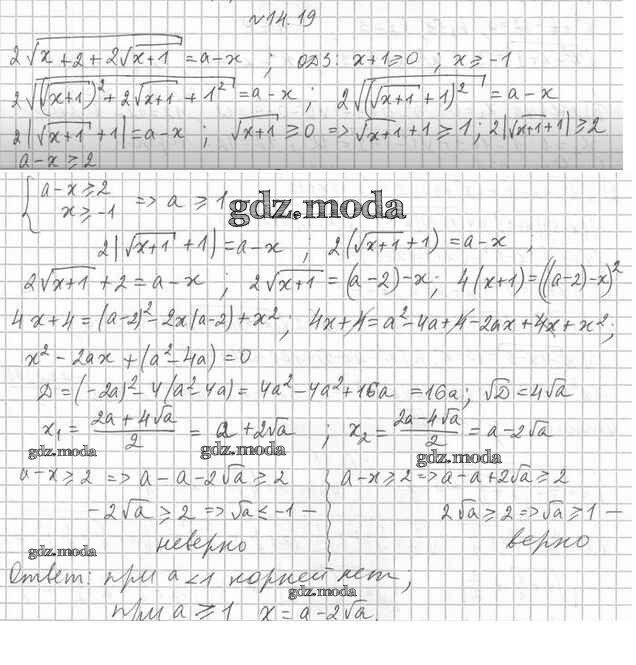 №14.19
2√(x+2+2√(x+1)) = a-x ; ОДЗ: x+1≥0 ; x≥-1
2√((√(x+1))²+2√(x+1)+1²) = a-x ; 2√((√(x+1)+1)²) = a-x
2|√(x+1)+1| = a-x ; √(x+1) ≥ 0 => √(x+1)+1 ≥ 1 ; 2|√(x+1)+1| ≥ 2
a-x ≥ 2
{ a-x ≥ 2
x ≥ -1 => a ≥ 1
gdz.moda
2|√(x+1)+1) = a-x , 2(√(x+1)+1) = a-x ;
2√(x+1)+2 = a-x ; 2√(x+1) = (a-2)-x ; 4(x+1) = ((a-2)-x)²
4x+4 = (a-2)²-2x(a-2)+x² ; 4x+4 = a²-4a+4-2ax+4x+x² ;
x²-2ax+(a²-4a) = 0
D = (-2a)²-4(a²-4a) = 4a²-4a²+16a = 16a ; √D = 4√a
x₁ = (2a+4√a)/2 = a+2√a ; x₂ = (2a-4√a)/2 = a-2√a
gdz.moda gdz.moda gdz.moda
a-x ≥ 2 => a-a-2√a ≥ 2
-2√a ≥ 2 => √a ≤ -1 –
неверно
a-x ≥ 2 => a-a+2√a ≥ 2
2√a ≥ 2 => √a ≥ 1 –
верно
gdz.moda
Ответ: при a<1 корней нет ;
gdz.moda
при a ≥ 1 x = a-2√a.